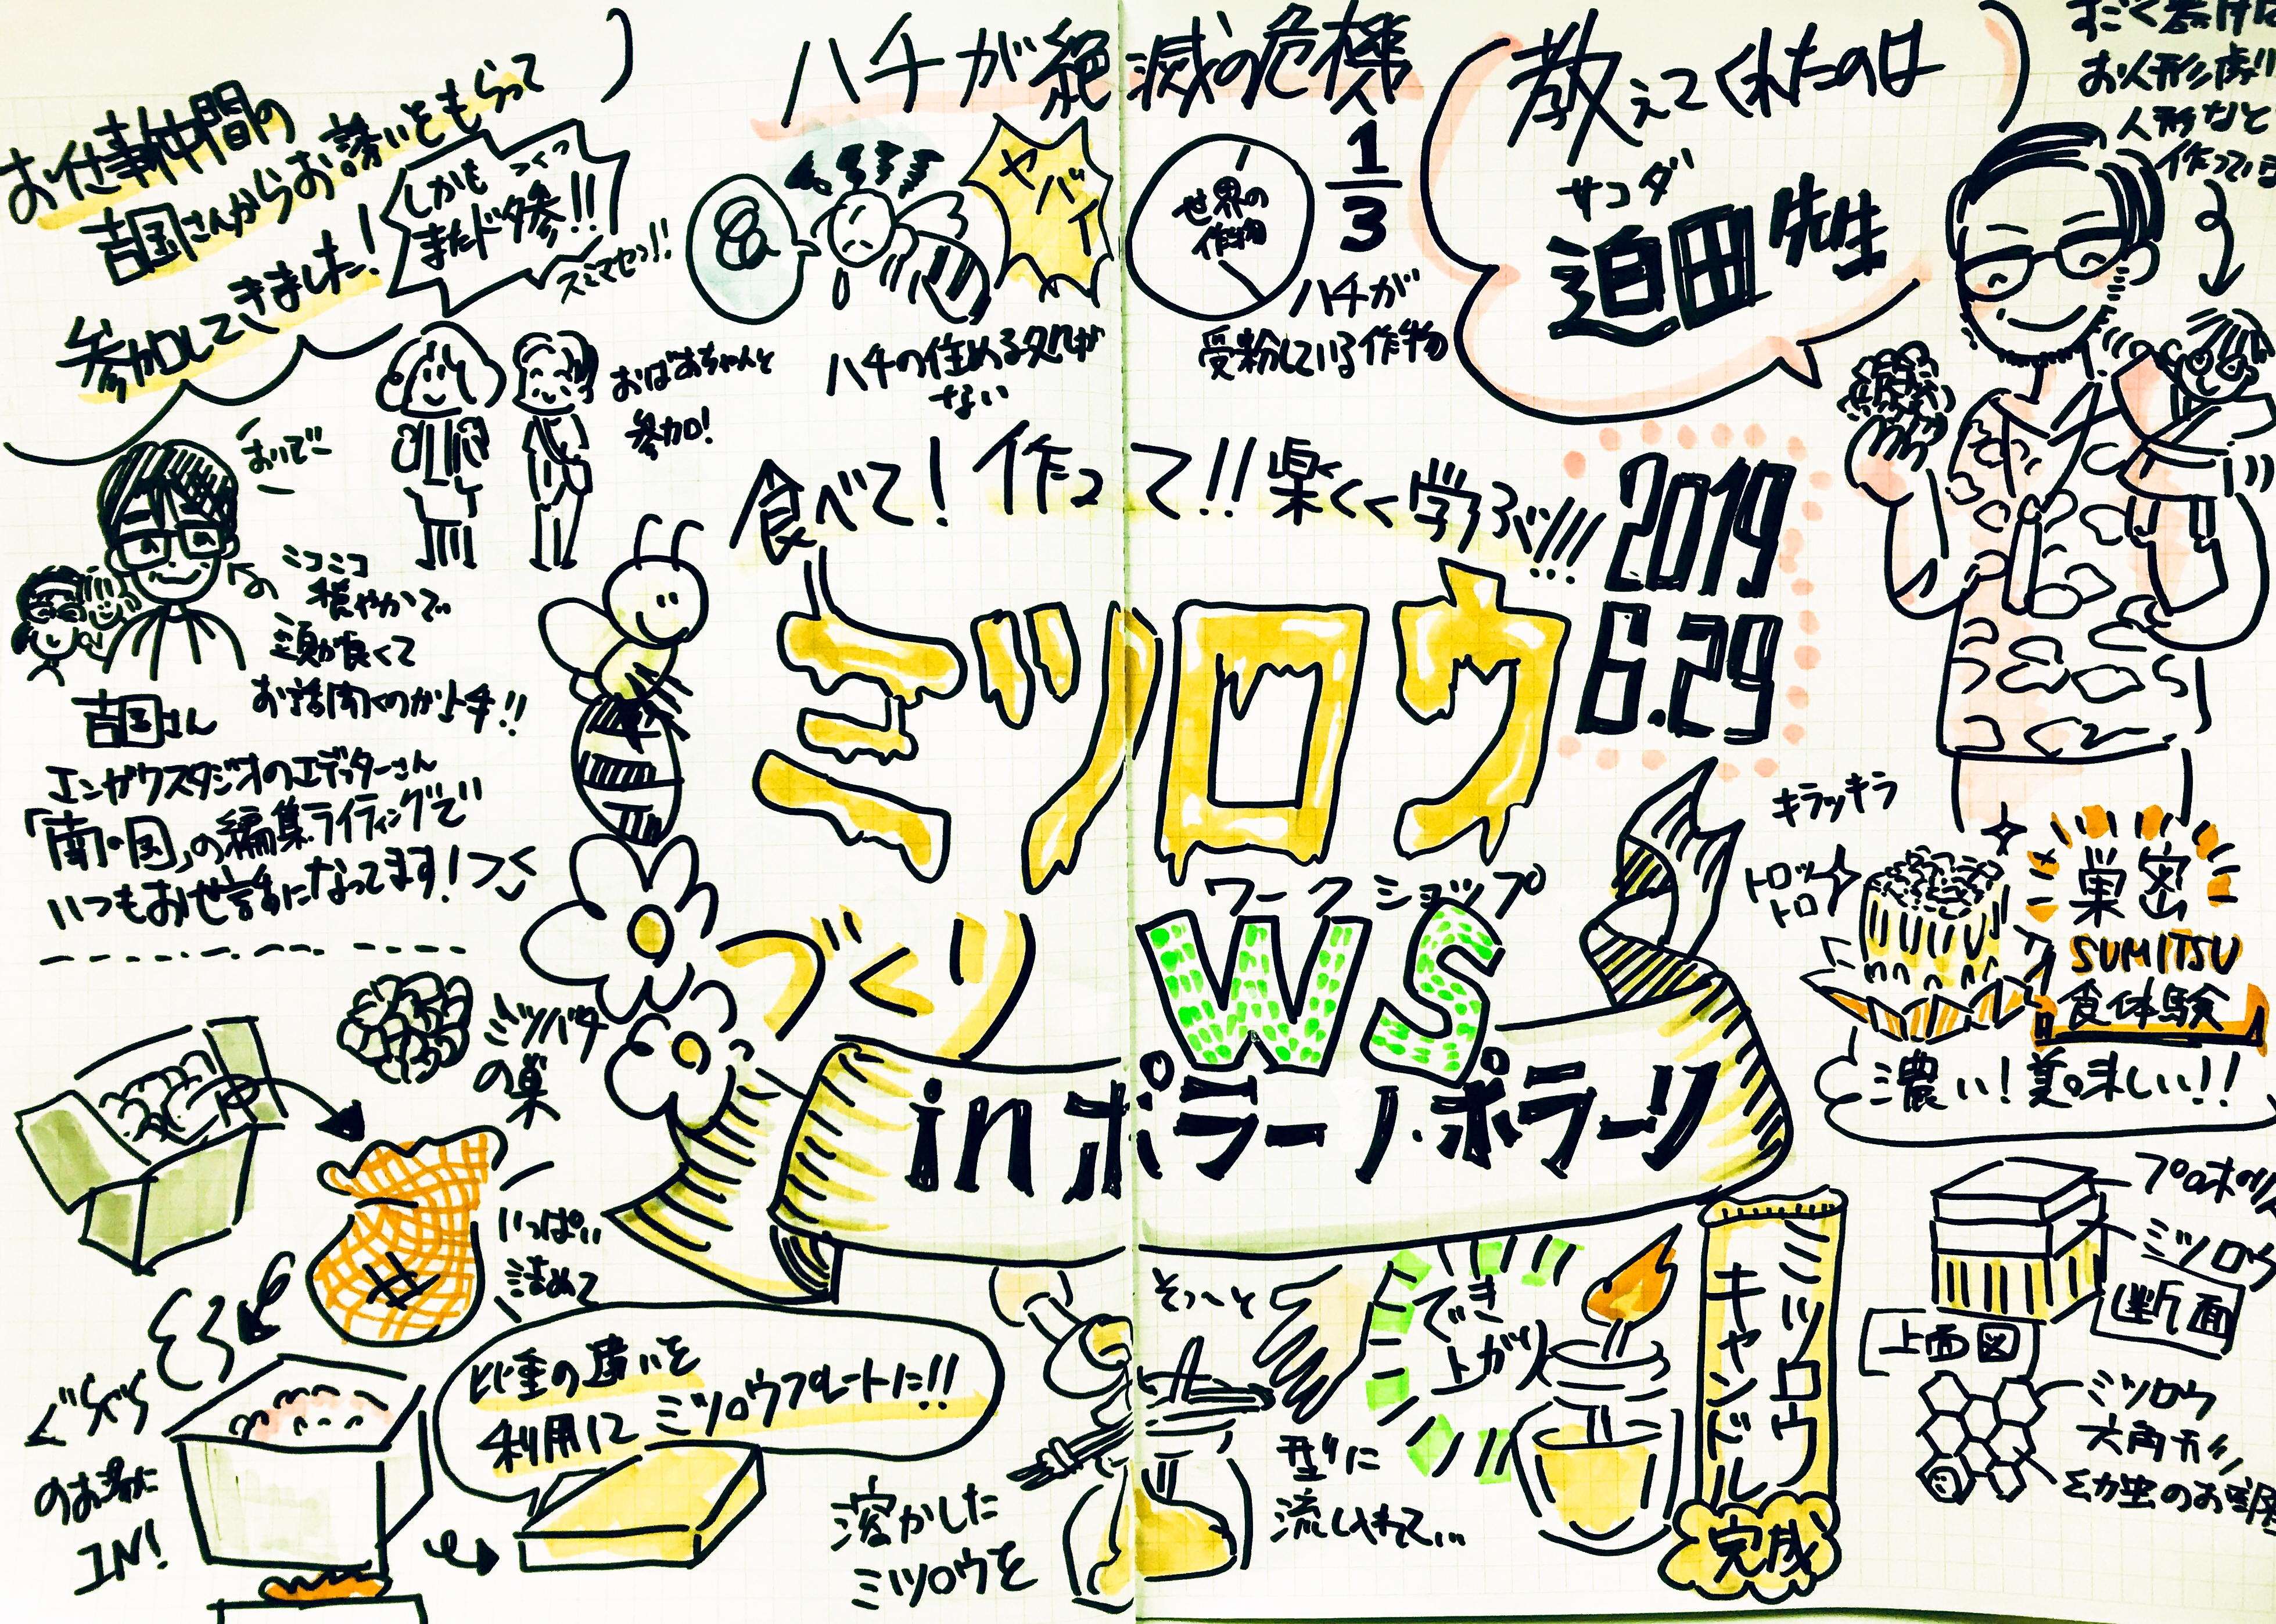 お仕事仲間の
吉国さんからお誘いをもらって
参加してきました!
しかも
またドタ参!!
スミマセン!!
おばあちゃんと
参加!
おいでー
ニコニコ
穏やかで
頭が良くて
お話聞くのが上手!!
吉国さん
エンガワスタジオのエディターさん
「南の国」の編集ライティングで
いつもお世話になってます!
ハチが絶滅の危機
ヤバイ
ハチの住める処が
ない
世界の
作物
1/3
ハチが
受粉している作物
教えてくれたのは
サコダ
迫田先生
お人形劇
人形など
作っている
食べて!作って!!楽しく学ぶ!!!
2019
6.29
ミツロウ
づくり
ワークショップ
WS
inポラーノ・ポラーリ
キラッキラ
トロッ
トロ
巣密
SUMITSU
食体験
濃い!美味しい!!
ミツバチ
の巣
いっぱい
詰めて
ぐらぐら
のお湯に
IN!
比重の違いを
利用して
ミツロウプレートに!!
溶かした
ミツロウを
そ〜っと
型に
流し入れて…
でき
上がり
ミツロウ
キャンドル
完成
ミツロウ
断面
上面図
ミツロウ
六角形
幼虫のお部屋